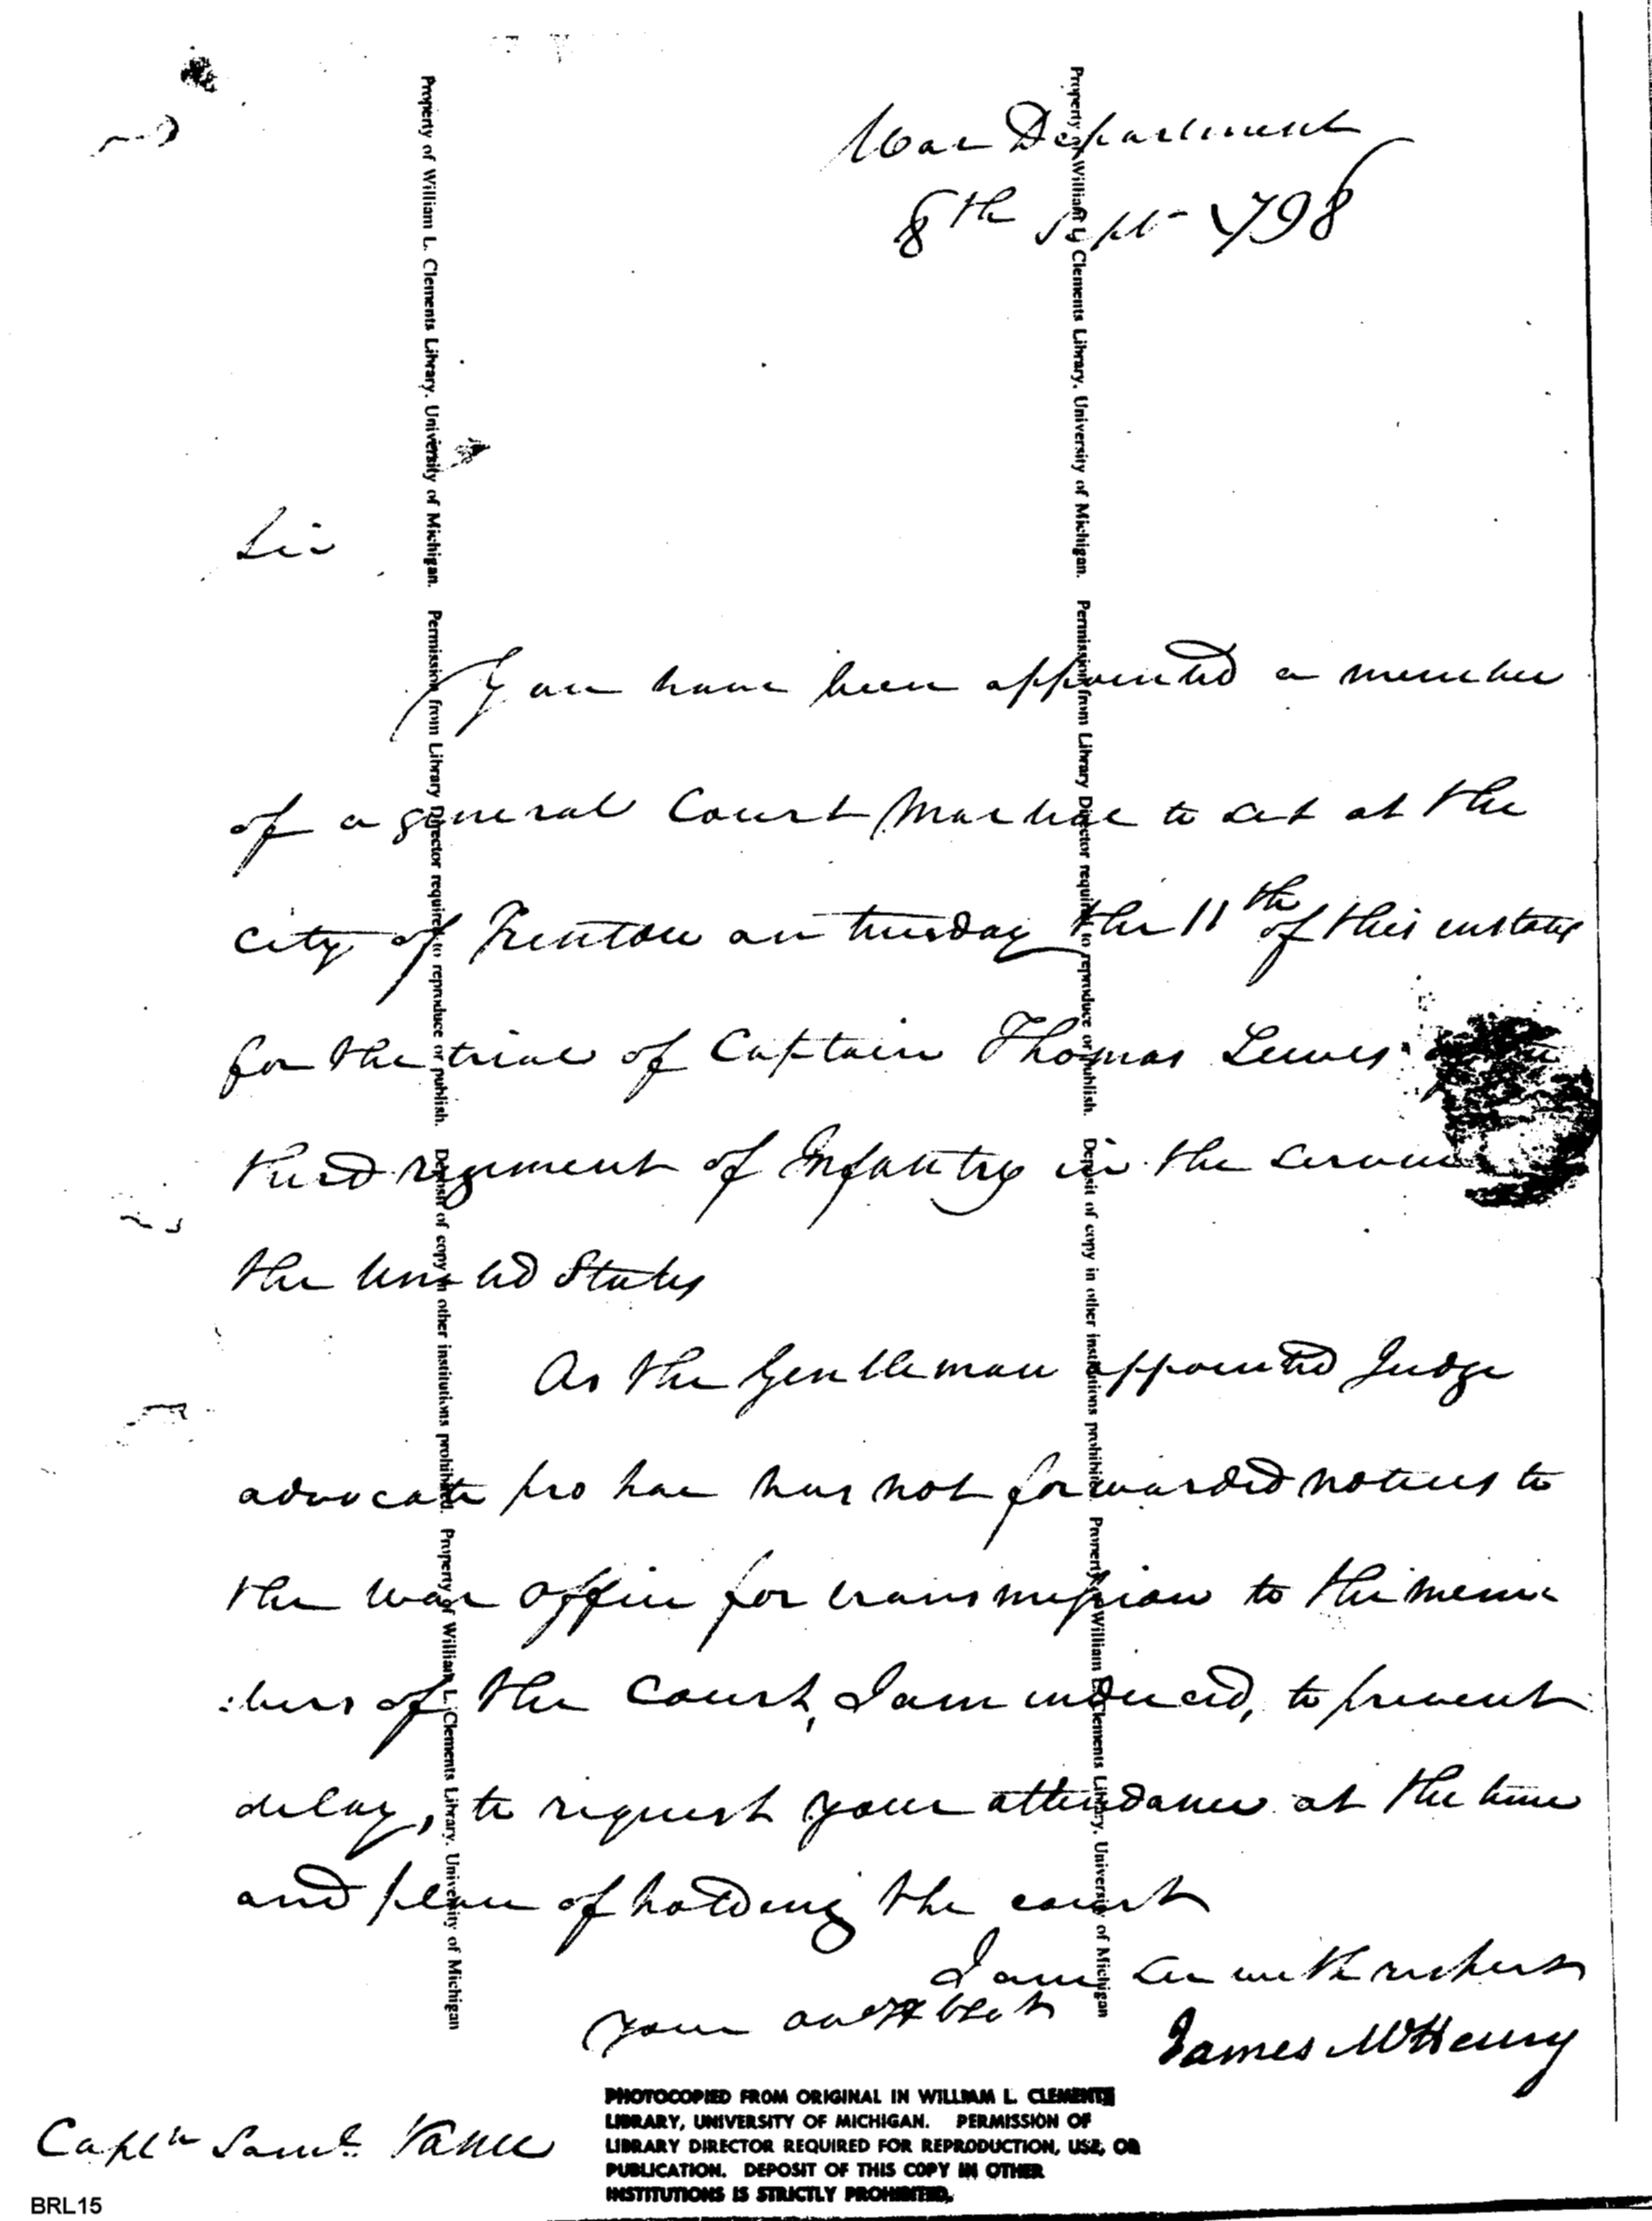 War Department
8th Sept 1798
Sir
You have been appointed a member
of a general Court Martial to set at the
city of Trenton on tuesday the 11th of this instant
for the trial of Captain Thomas Lewis
third regiment of Infantry in the service
the United States
As the Gentleman appointed Judge
advocate pro hac has not forwarded notices to
the war office for transmission to the mem-
:bers of the Court, I am induced, to prevent
delay, to request your attendance at the time
and place of holding the court
I am Sir with respect
your obt
James McHenry
Captn Saml. Vance
Property of William L. Clements Library, University of Michigan. Permission from Library Director required to reproduce or publish. Deposit of copy in other institutions prohibited. Property of William L. Clements Library, University of Michigan
Property of William L. Clements Library, University of Michigan. Permission from Library Director required to reproduce or publish. Deposit of copy in other institutions prohibited. Property of William L. Clements Library, University of Michigan
PHOTOCOPIED FROM ORIGINAL IN WILLIAM L. CLEMENTS
LIBRARY, UNIVERSITY OF MICHIGAN. PERMISSION OF
LIBRARY DIRECTOR REQUIRED FOR REPRODUCTION, USE, OR
PUBLICATION. DEPOSIT OF THIS COPY IN OTHER
INSTITUTIONS IS STRICTLY PROHIBITED.
BRL15